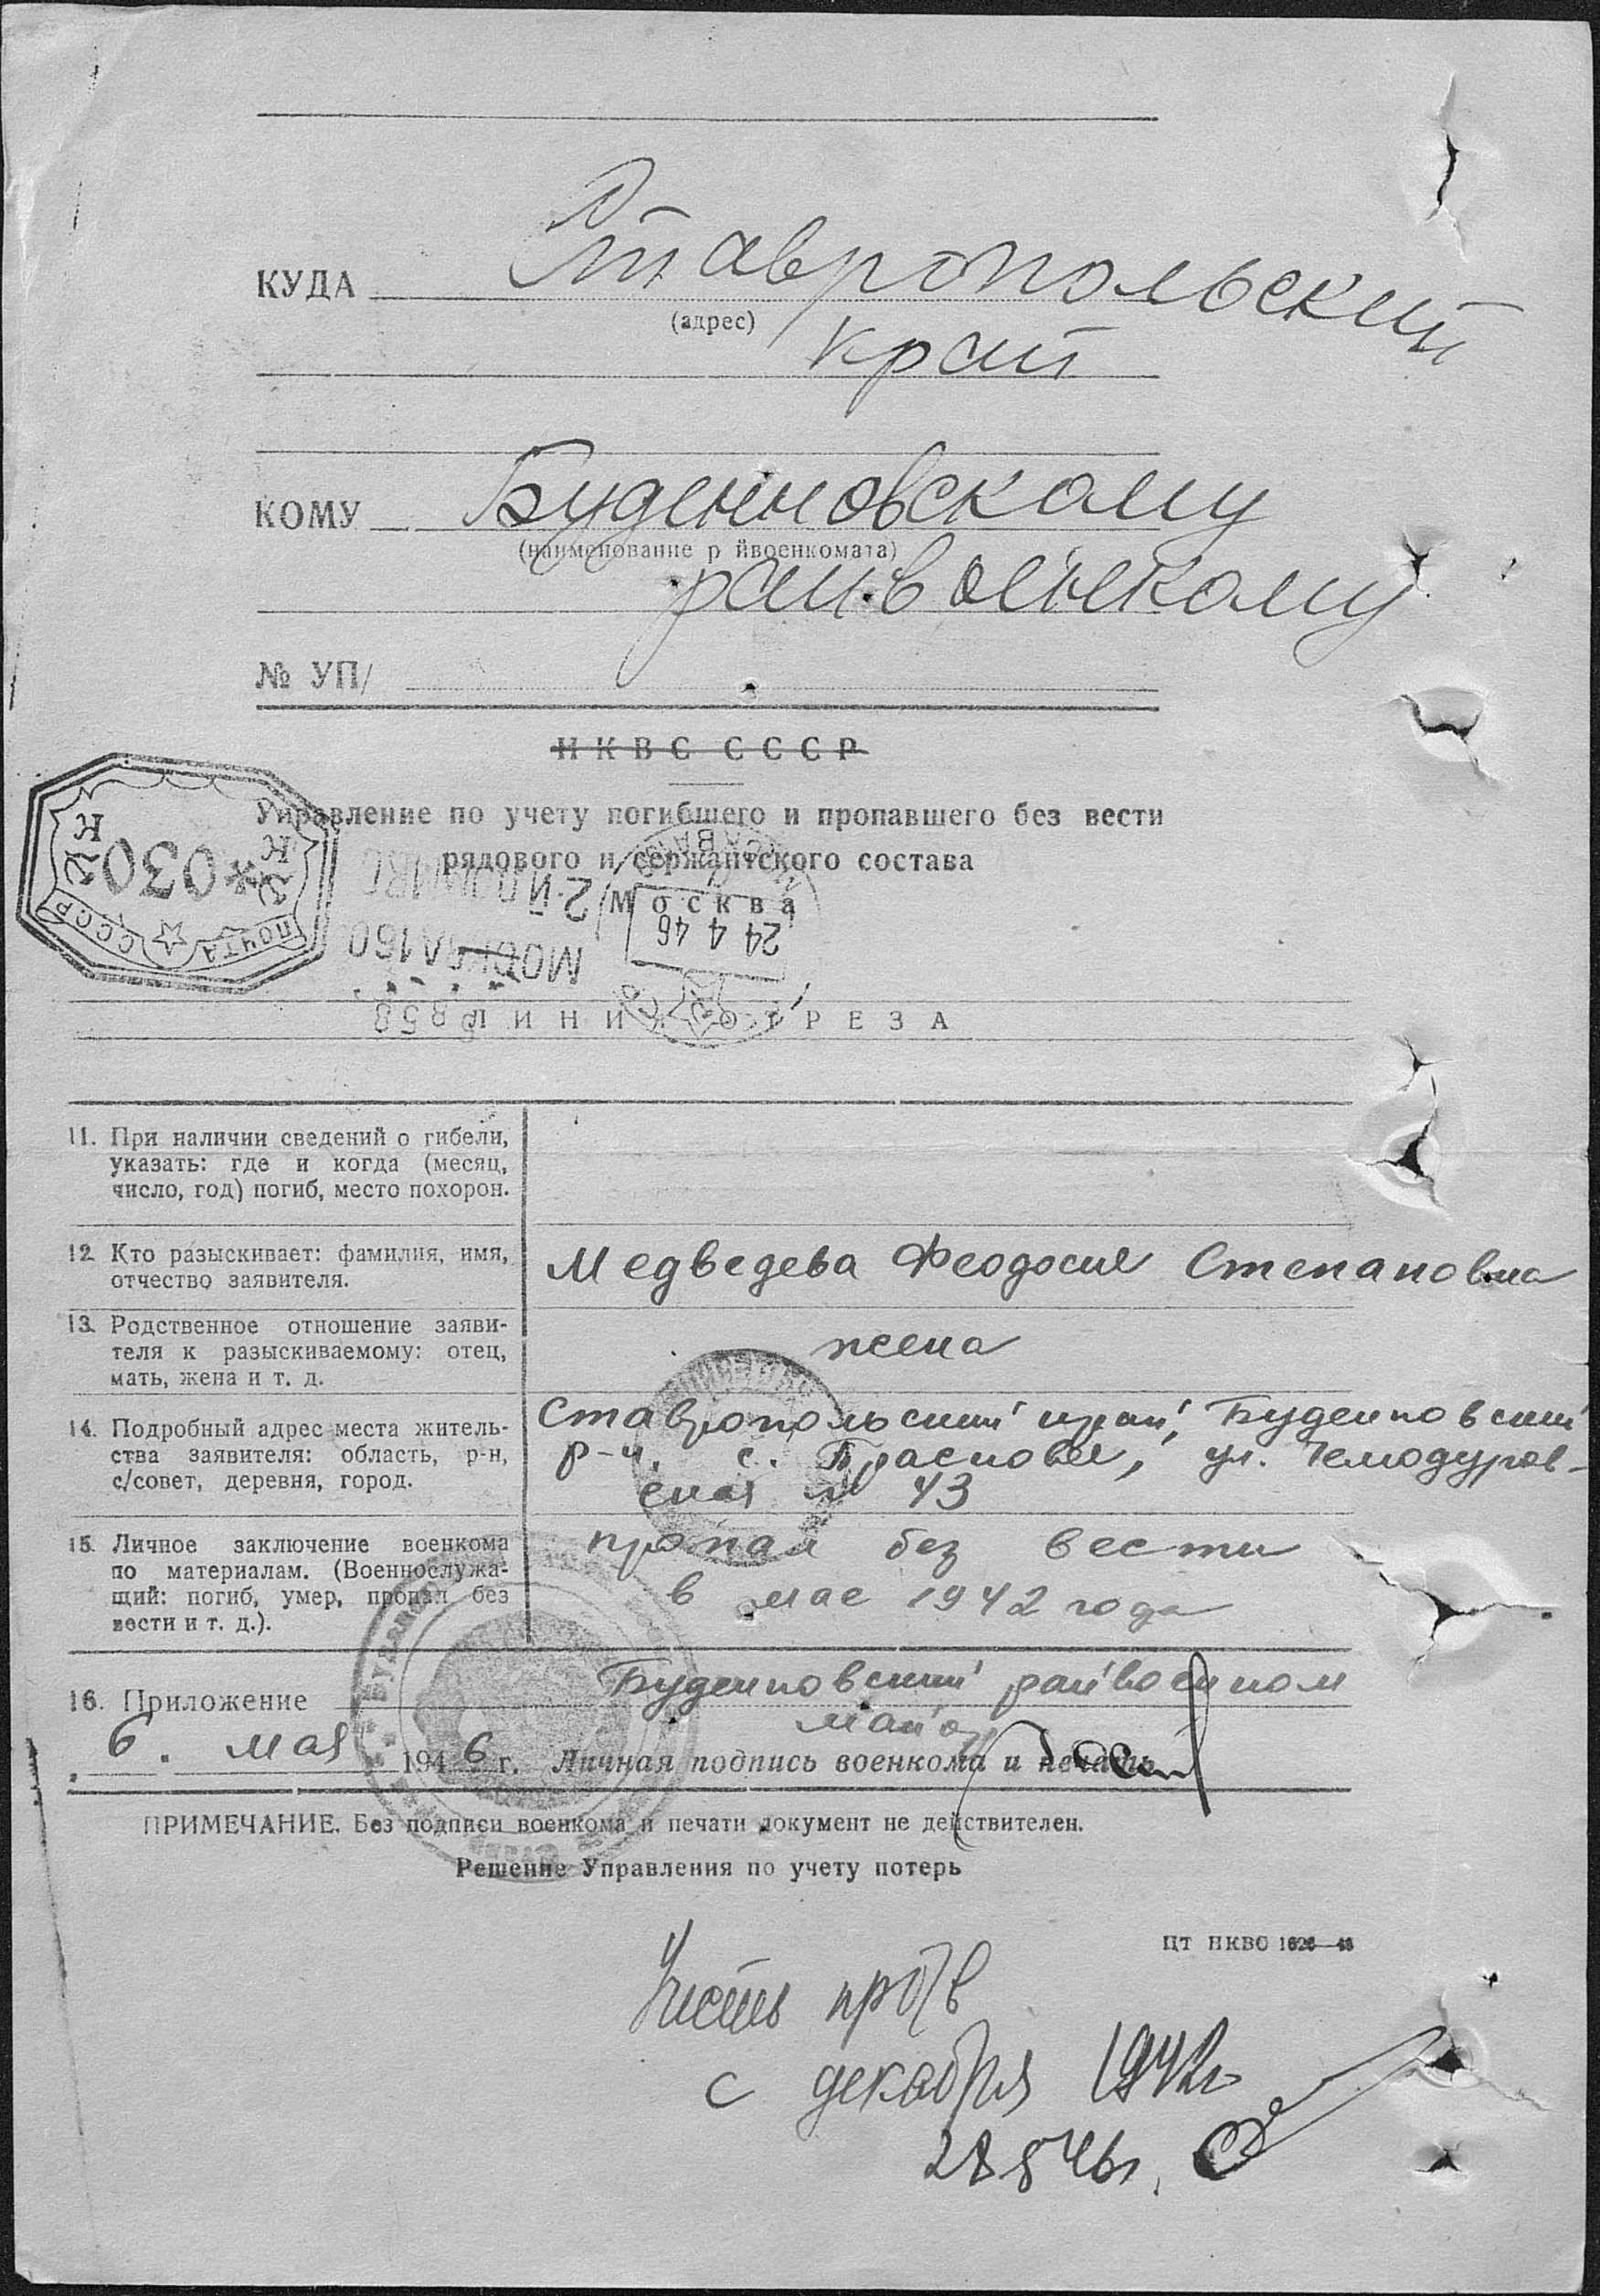 Ставропольский
КУДА
(адрес)
край
Буденновскому
КОМУ
(наименование р йвоенкомата)
райвоенкому
№ УП/
НКВС СССР
Управление по учету погибшего и пропавшего без вести
рядового и сержантского состава
Москва
ПОЧТА СССР
*030
КК
МОСКВА 160
24 4 46
Р 858
ЛИНИЯ ОТРЕЗА
11. При наличии сведений о гибели,
указать: где и когда (месяц,
число, год) погиб, место похорон.
12. Кто разыскивает: фамилия, имя,
отчество заявителя.
Медведева Феодосия Степановна
13. Родственное отношение заяви-
теля к разыскиваемому: отец,
мать, жена и т. д.
жена
14. Подробный адрес места житель-
ства заявителя: область, р-н,
с/совет, деревня, город.
Ставропольский край, Буденновский
р-н. с. Прасковея, ул.
ская № 43
15. Личное заключение военкома
по материалам. (Военнослужа-
щий: погиб, умер, пропал без
вести и т. д.).
пропал без вести
в мае 1942 года
16. Приложение
Буденновский райвоенком
майор
6. мая 1946 г. Личная подпись военкома и печать
ПРИМЕЧАНИЕ. Без подписи военкома и печати документ не действителен.
Решение Управления по учету потерь
ЦТ НКВО 1626—45
Учесть пр б/в
с декабря 1942г
28 8 46г.